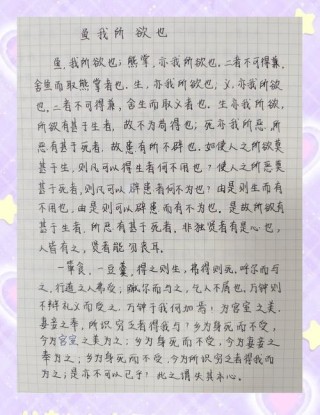 鱼我所欲也
鱼,我所欲也;熊掌,亦我所欲也,二者不可得兼,
舍鱼而取熊掌者也。生,亦我所欲也;义,亦我所欲
也,二者不可得兼,舍生而取义者也。生亦我所欲,
所欲有甚于生者,故不为苟得也;死亦我所恶,所
恶有甚于死者,故患有所不辟也。如使人之所欲莫
甚于生,则凡可以得生者何不用也?使人之所恶莫
甚于死者,则凡可以辟患者何不为也?由是则生而有
不用也,由是则可以辟患而有不为也。是故所欲有
甚于生者,所恶有甚于死者。非独贤者有是心也,
人皆有之,贤者能勿丧耳。
一箪食,一豆羹,得之则生,弗得则死。呼尔而与
之,行道之人弗受;蹴尔而与之,乞人不屑也。万钟则
不辩礼义而受之,万钟于我何加焉!为宫室之美,
妻妾之奉,所识穷乏者得我与?乡为身死而不受,
今为宫室之美为之;乡为身死而不受,今为妻妾之
奉为之;乡为身死而不受,今为所识穷乏者得我而
为之;是亦不可以已乎!此之谓失其本心。